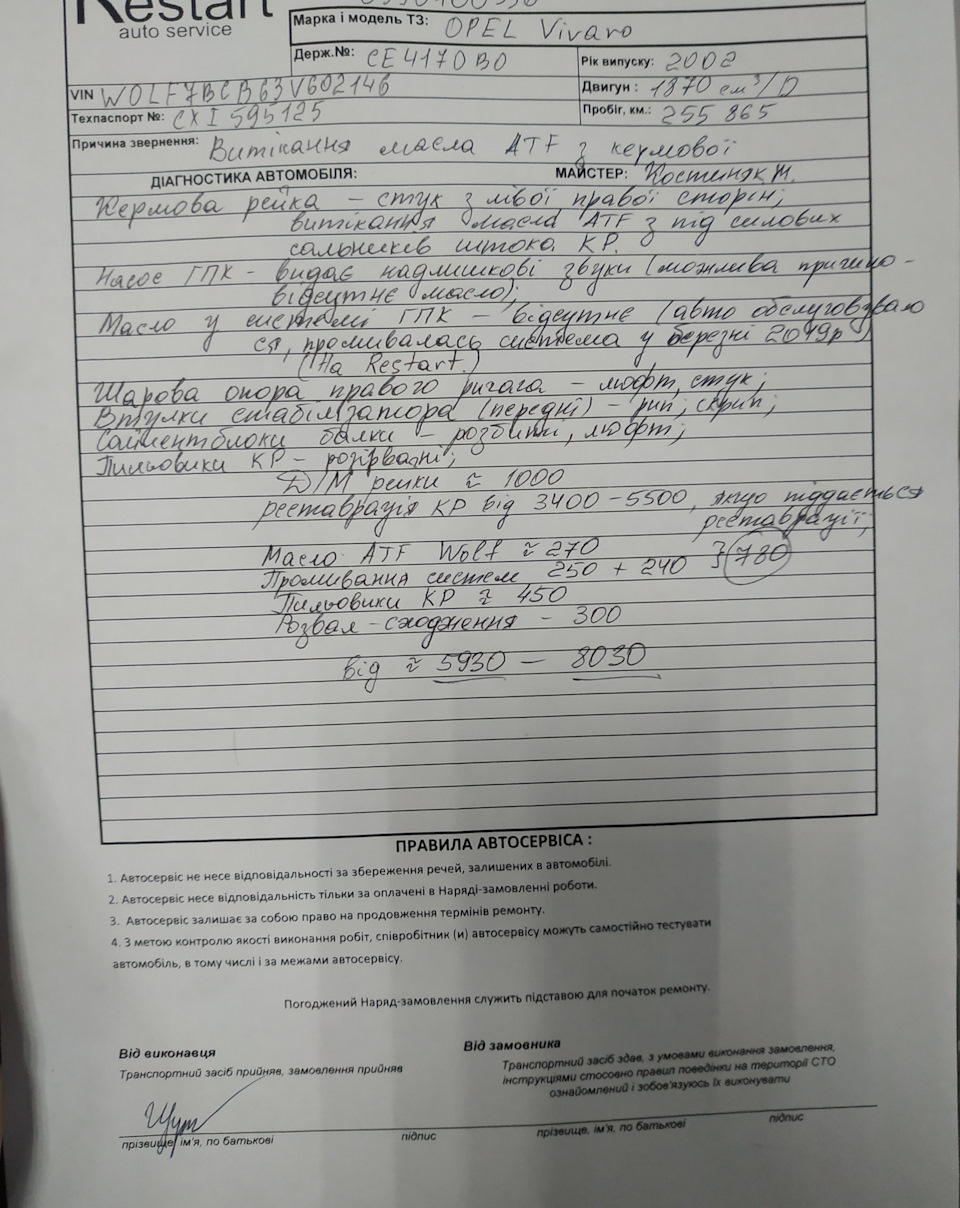 Restart
auto service
Марка і модель ТЗ: OPEL Vivaro
Держ.№: CE4170BO
Рік випуску: 2002
VIN WOLF7BCB63V602146
Двигун : 1870 см³/D
Техпаспорт №: CXI 595125
Пробіг, км.: 255 865
Причина звернення: Витікання масла ATF з кермової
ДІАГНОСТИКА АВТОМОБІЛЯ: МАЙСТЕР: Костинюк Н.
Кермова рейка - стук з лівої правої сторін;
витікання масла ATF з під силових
сальників штока КР.
Насос ГПК - видає надлишкові звуки (можлива причино-
відсутнє масло);
Масло у системі ГПК - відсутнє (авто обслуговувало
ся, промивалась система у березні 2019р)
(На Restart.)
Шарова опора правого ричага - люфт, стук;
Втулки стабілізатора (передні) - рип, скрип;
Сайлентблоки балки - розбиті, люфт;
Пильовики КР - розірвані;
Д/М рейки ≈ 1000
реставрація КР від 3400 - 5500, якщо піддається
реставрації;
Масло ATF Wolf ≈ 270
Промивання систем, 250 + 240 } 780
Пильовики КР ≈ 450
Розвал-сходження - 300
від ≈ 5930 - 8030
ПРАВИЛА АВТОСЕРВІСА :
1. Автосервіс не несе відповідальності за збереження речей, залишених в автомобілі.
2. Автосервіс несе відповідальність тільки за оплачені в Наряді-замовленні роботи.
3. Автосервіс залишає за собою право на продовження термінів ремонту.
4. З метою контролю якості виконання робіт, співробітник (и) автосервісу можуть самостійно тестувати
автомобіль, в тому числі і за межами автосервісу.
Погоджений Наряд-замовлення служить підставою для початок ремонту.
Від виконавця
Транспортний засіб прийняв, замовлення прийняв
прізвище, ім'я, по батькові підпис
Від замовника
Транспортний засіб здав, з умовами виконання замовлення,
інструкціями стосовно правил поведінки на території СТО
ознайомлений і зобов'язуюсь їх виконувати
прізвище, ім'я, по батькові підпис